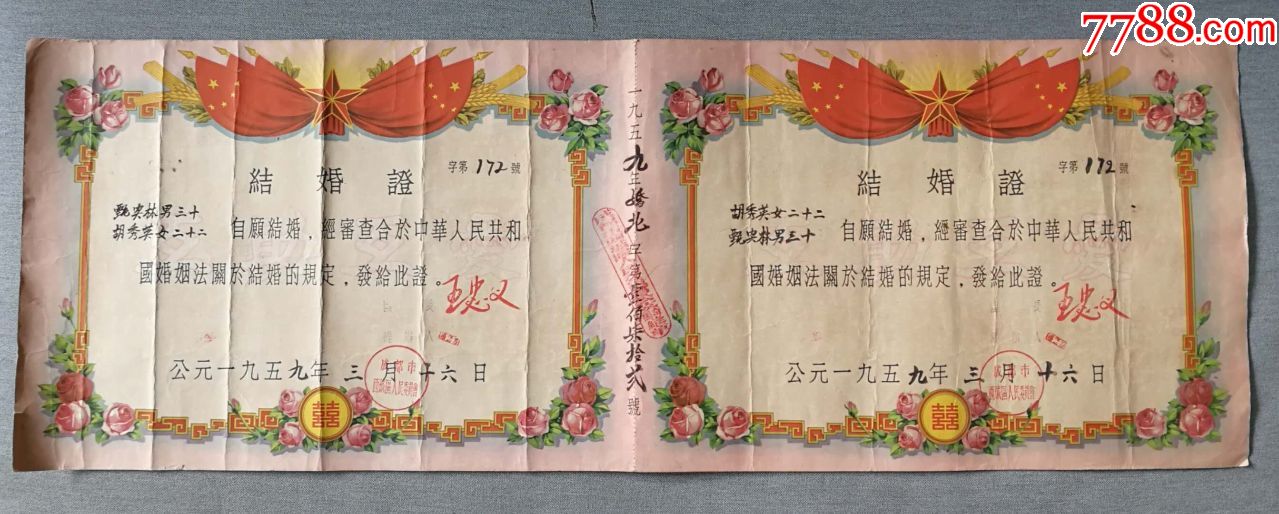 7788.com
字第172號
結婚證
甄栄林男三十
胡秀英女二十二
自願結婚，經審查合於中華人民共和
國婚姻法關於結婚的規定，發給此證。
王忠义
公元一九五九年三月十六日
成都市
囍
一九五九年婚北字第壹佰柒拾弍號
字第172號
結婚證
胡秀英女二十二
甄栄林男三十
自願結婚，經審查合於中華人民共和
國婚姻法關於結婚的規定，發給此證。
王忠义
公元一九五九年三月十六日
成都市
囍